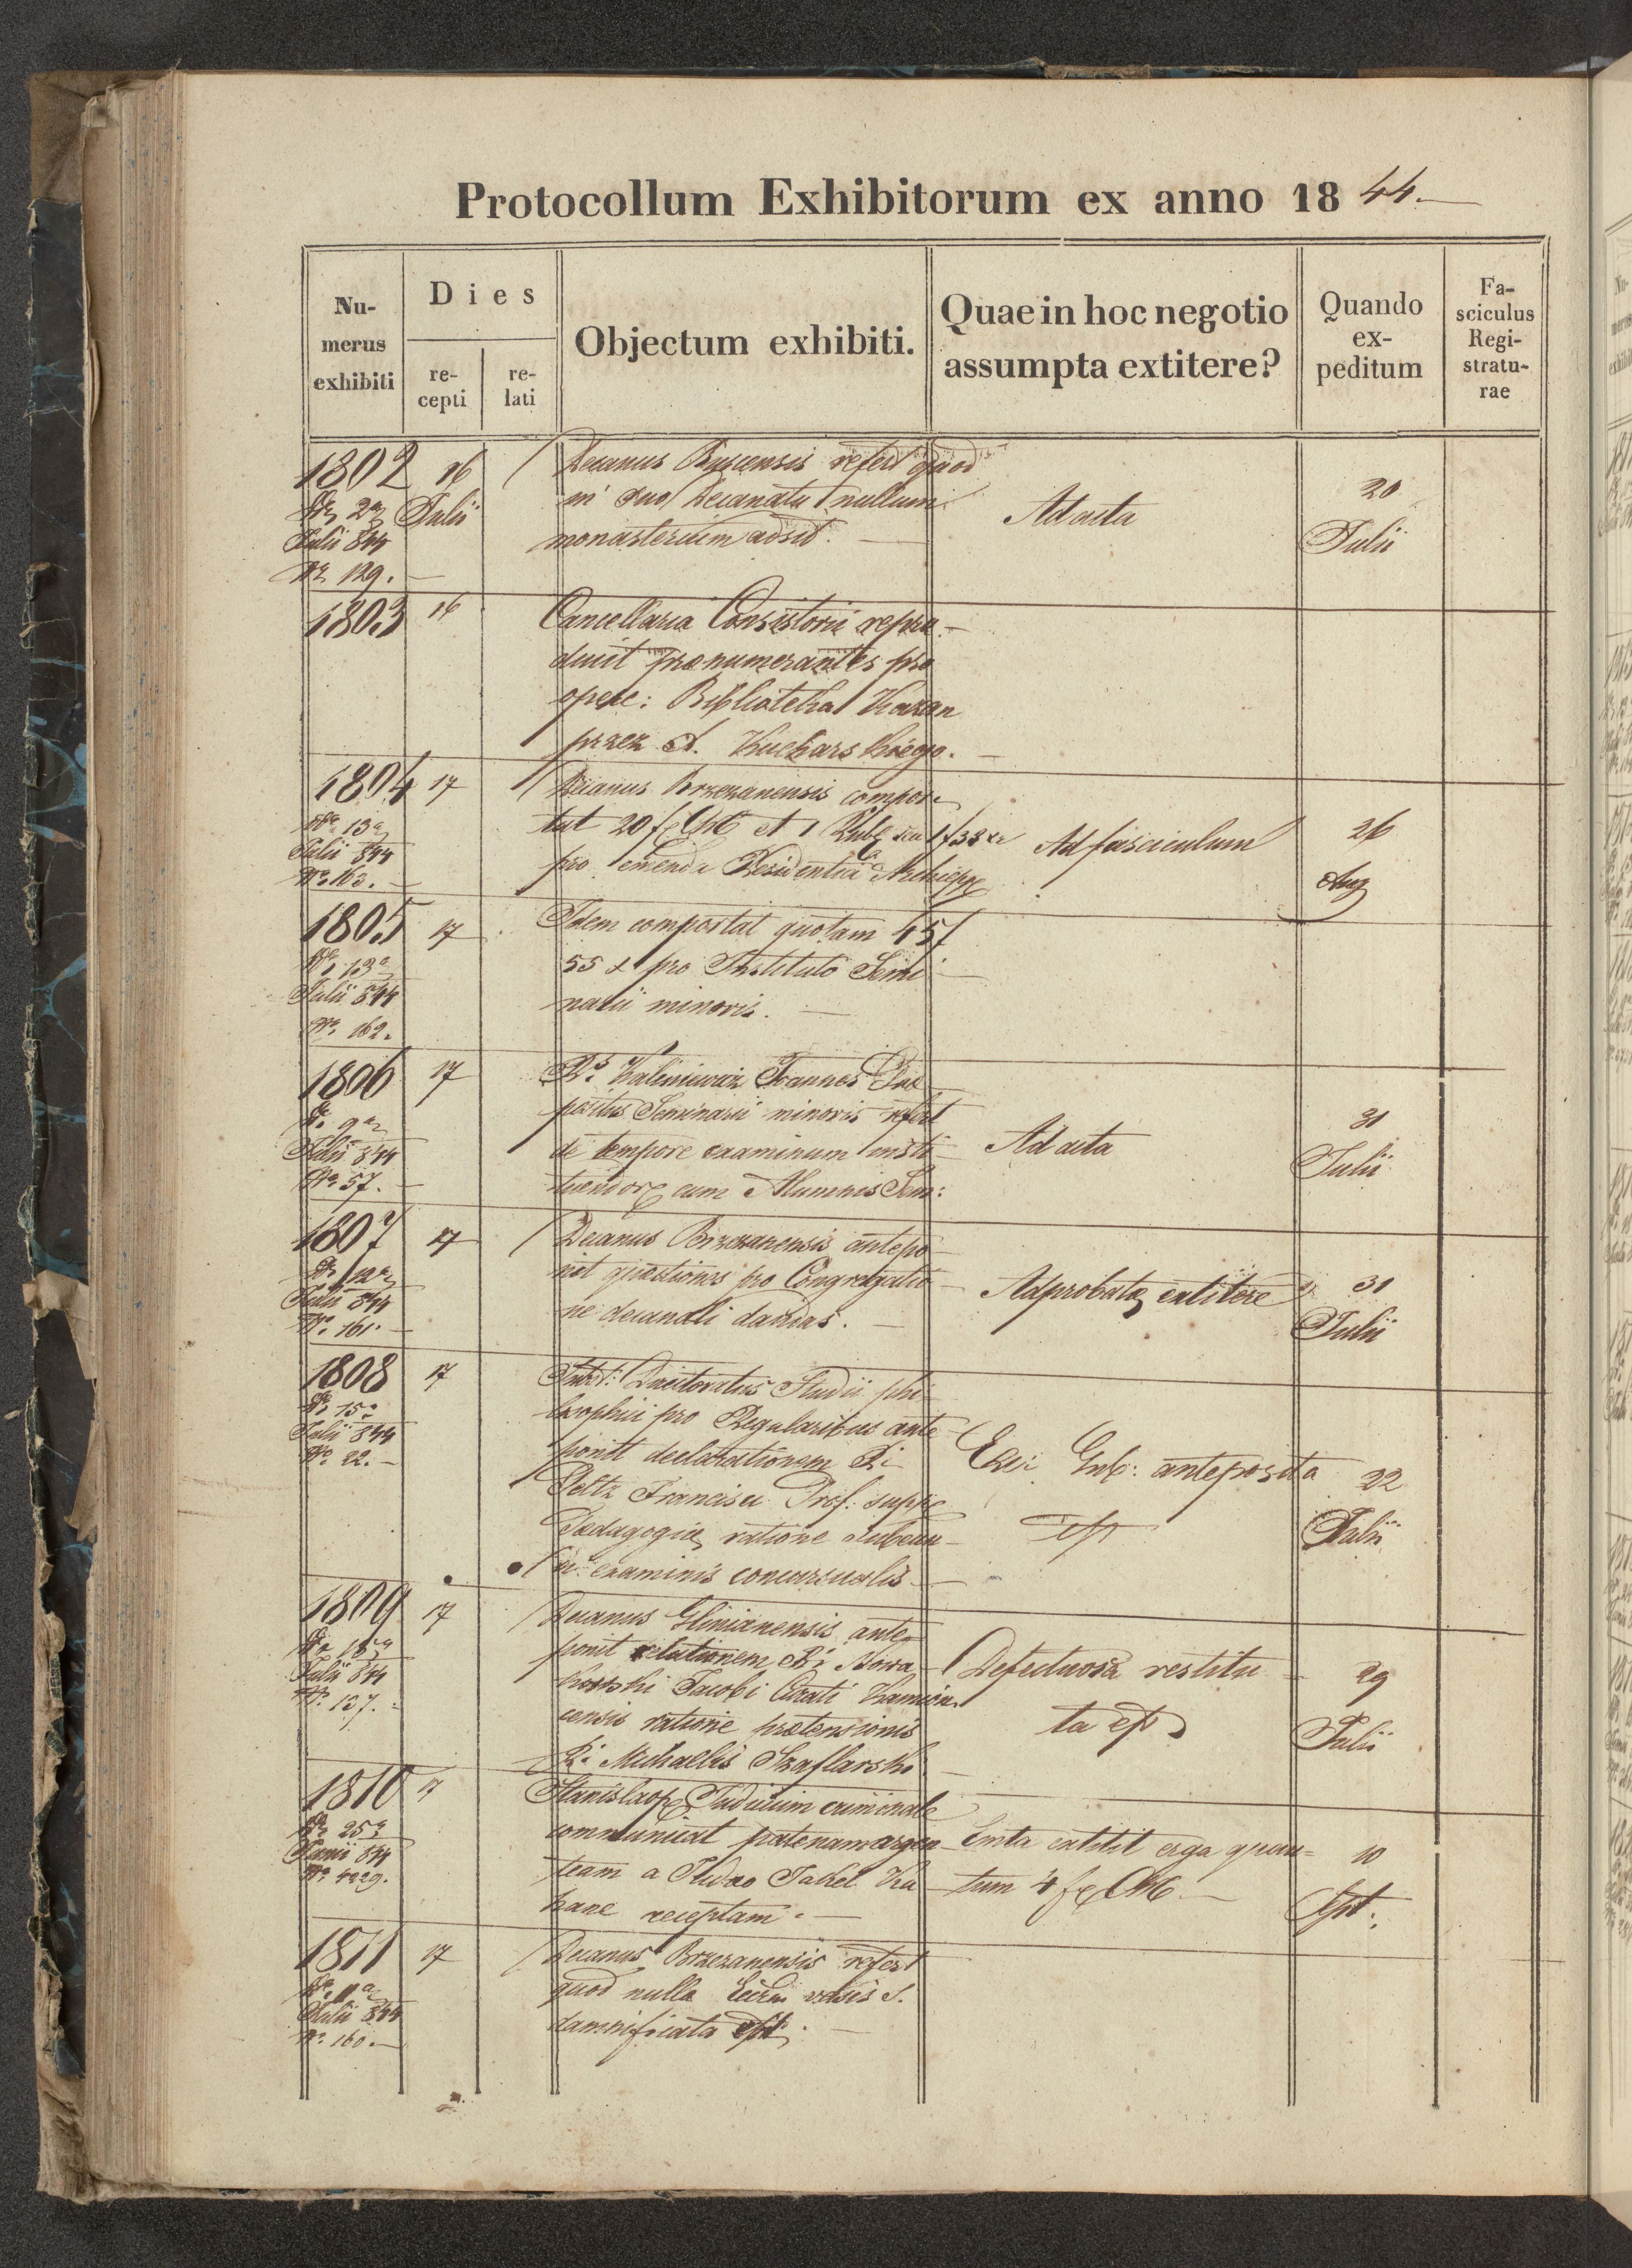 Protocollum Exhibitorum ex anno 1844.
Nu-
merus
exhibiti
Dies
re-
cepti
re-
lati
Objectum exhibiti.
Quae in hoc negotio
assumpta extitere?
Quando
ex-
peditum
Fa-
sciculus
Regi-
stratu-
rae
1802 16
Julii
Julii 844
129.
Decanus Buscensis refert quod
in suo Decanatu nullum
monasterium adsit.
Ad acta
20
Julii
1803 16
Cancellaria Consistorii repro-
ducit praenumerantes pro
opere: Biblioteka Kazan
przez A. Kucharskiego.
1804 17
13a
Julii 844
No 163.
Decanus Brzezanensis compor-
tat 20 f CM et 1 Rub seu 1 f 38 xr
pro emenda Residentia
Ad fasciculum
26
Aug
1805 17
13a
Julii 844
No 162.
Idem comportat quotam 45 f
55 x pro Instituto Semi-
narii minoris.
1806 17
9a
Julii 844
No 57.
Kaliniewicz Joannes Prae-
positus Seminarii minoris refert
de tempore examinum insti-
cum Alumnis Sem:
Ad acta
31
Julii
1807 17
12a
Julii 844
No 161.
Decanus Brzezanensis antepo-
nit quaestiones pro Congregatio-
ne decanali dandas.
Adprobatae extitere
31
Julii
1808 17
15a
Julii 844
No 22.
Directoratus Studii phi-
losophici pro Regularibus ante-
ponit declarationem Ri
Peltz Francisci Prof. suppl
Paedagogiae ratione subeun-
di examinis concursualis
Exc: Gub: anteposita
est
22
Julii
1809 17
Julii 844
No 157.
Decanus Glinianensis ante-
ponit relationem Ri Nowa-
kowski Jacobi Curati Kamion-
censis ratione praetensionis
Ri Michaelis Szaflarski
Defectuosa restitu-
ta est
29
Julii
1810 17
25a
Junii 844
No 4229.
Judicium criminale
communicat patenam argen-
team a Judaeo Jakel Ka-
hane receptam.
Emta extitit erga quan-
tum 4 f CM.
10
Sept:
1811 17
Julii 844
No 160.
Decanus Brzezanensis refert
quod nulla Eccla vasis s.
damnificata est.